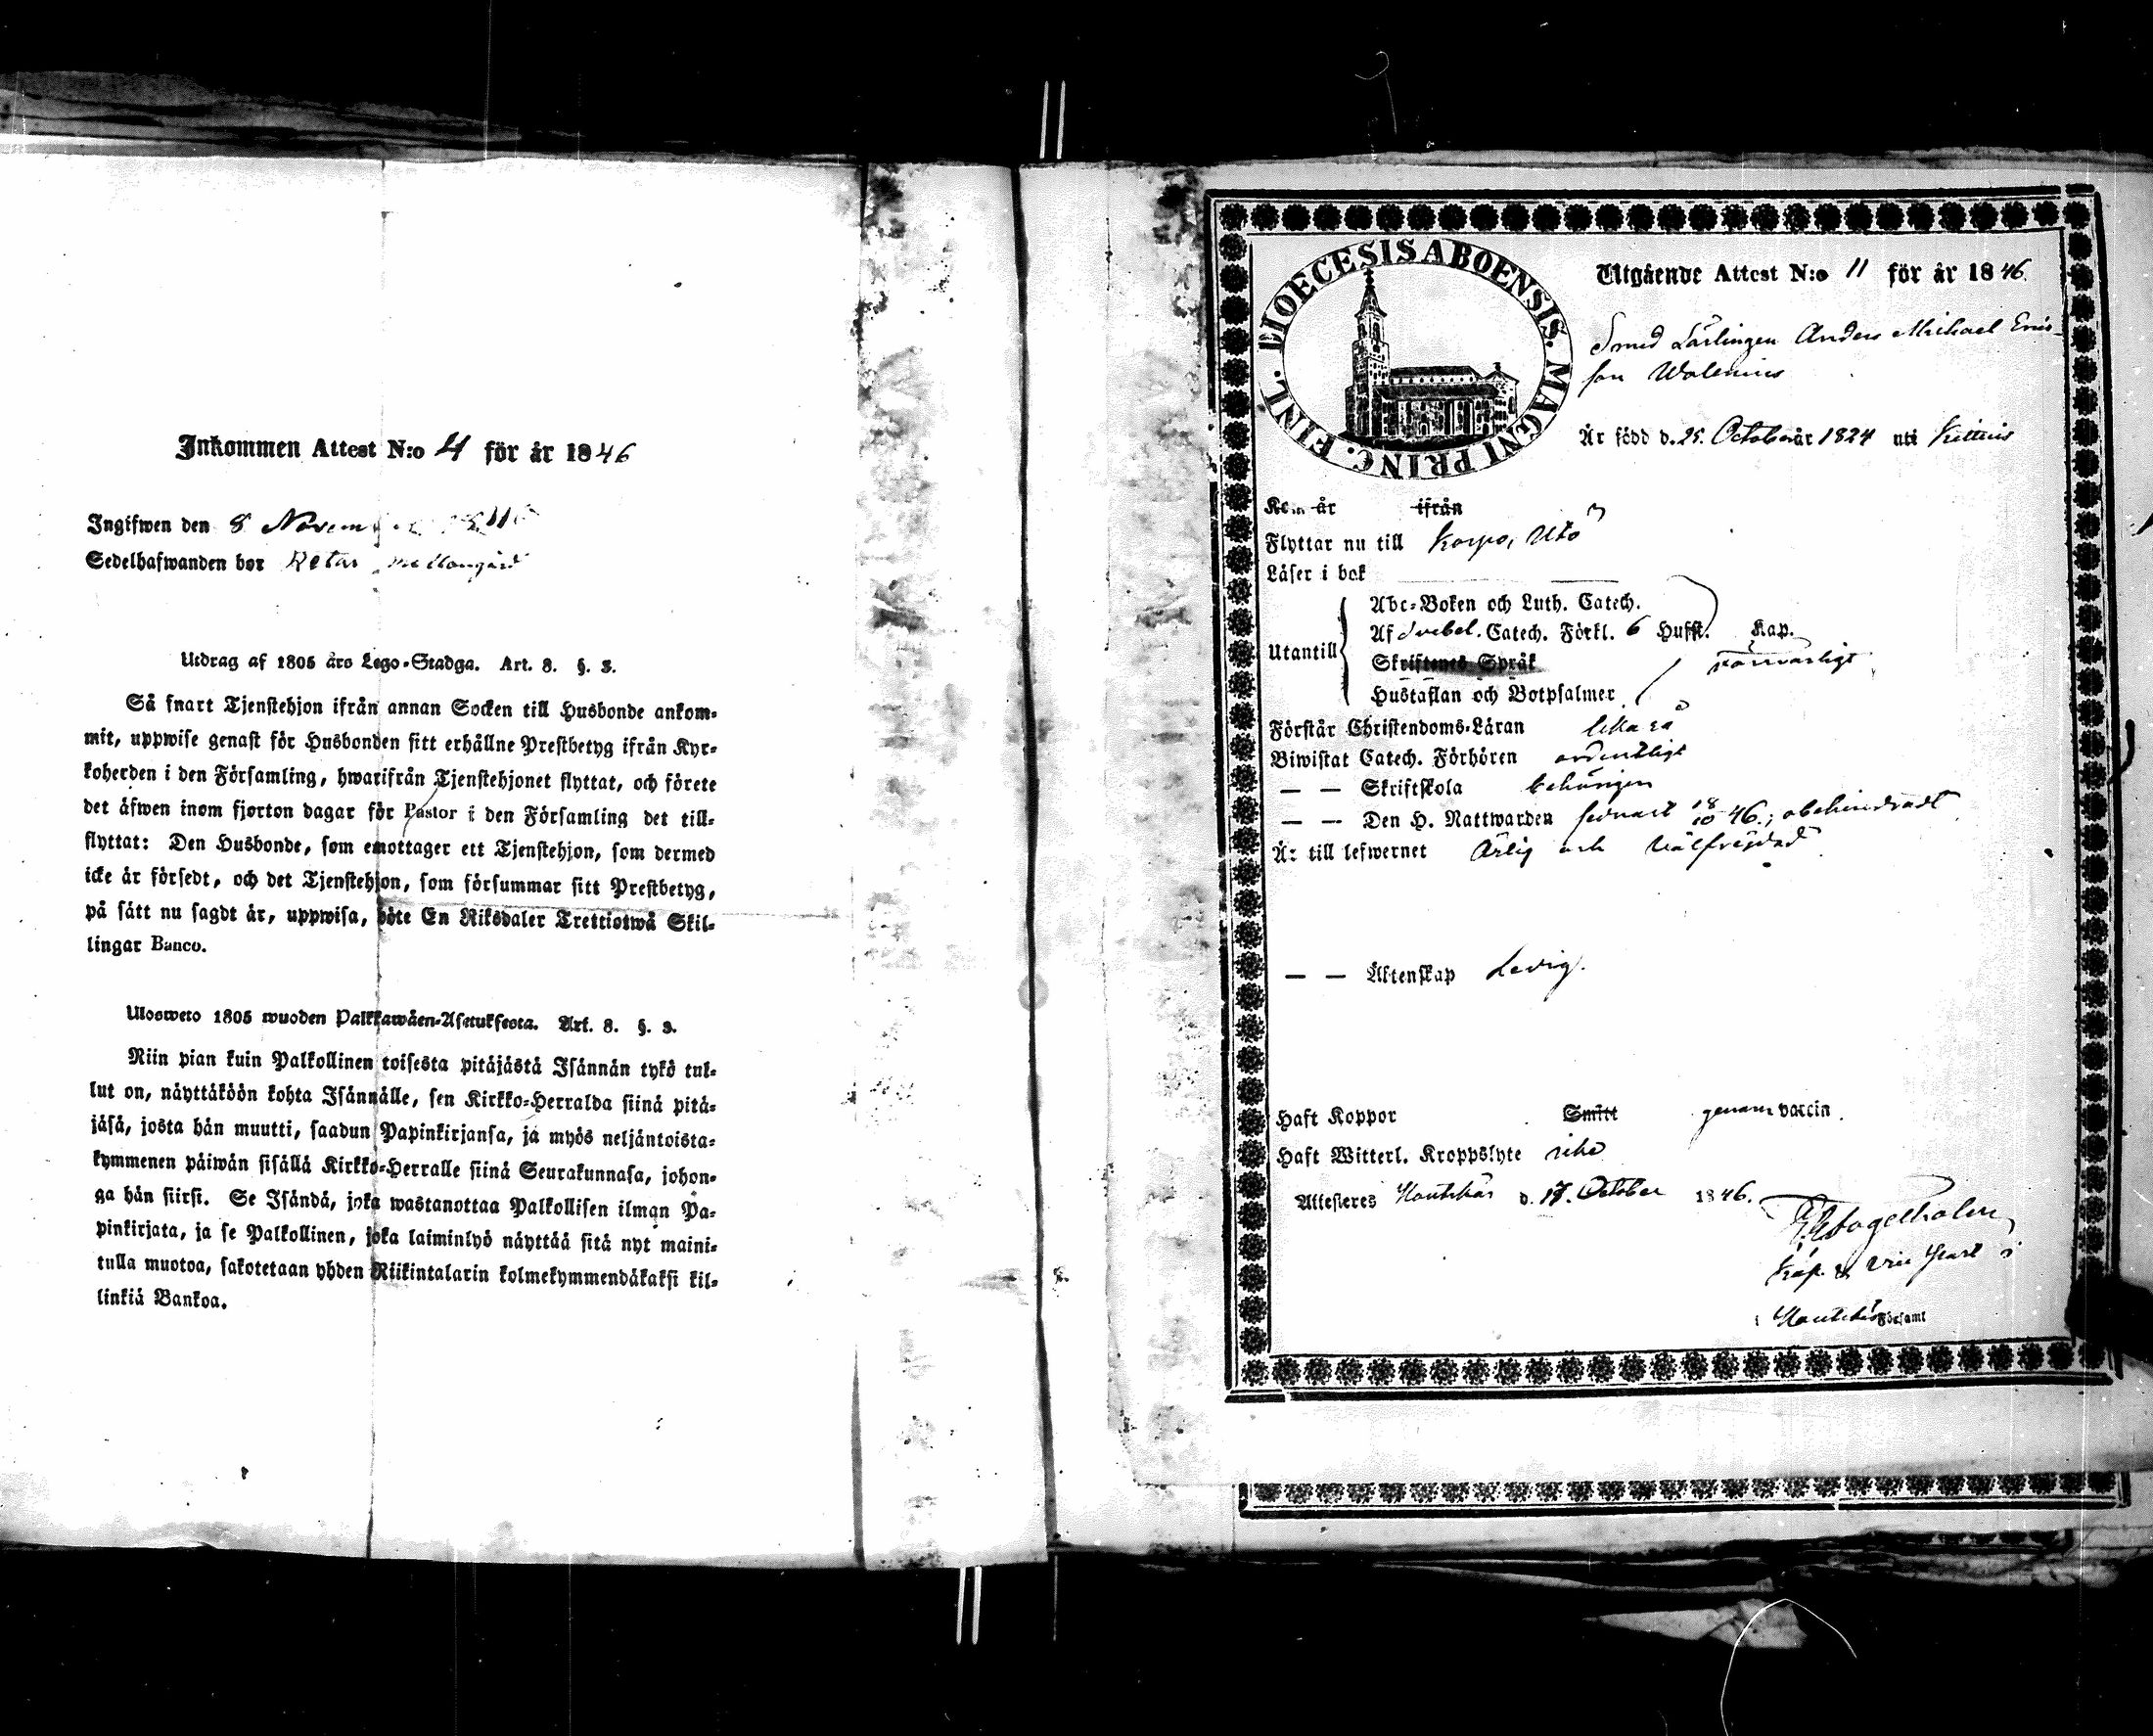 Inkommen Attest N:o 4 för år 1846
Ingifwen den 8 Novem
Sedelhafwanden bor Retais Mellangård
Utdrag af 1805 års Lego-Stadga. Art. 8. §. 3.
Så snart Tjenstehjon ifrån annan Socken till Husbonde ankom-
mit, uppwise genast för Husbonden sitt erhållne Prestbetyg ifrån Kyr-
koherden i den Församling, hwarifrån Tjenstehjonet flyttat, och förete
det äfwen inom fjorton dagar för Pastor i den Församling det till-
flyttat: Den Husbonde, som emottager ett Tjenstehjon, som dermed
icke är försedt, och det Tjenstehjon, som försummar sitt Prestbetyg,
på sätt nu sagdt är, uppwisa, böte En Riksdaler Trettiotwå Skil-
lingar Banco.
Ulosweto 1805 wuoden Palkkawäen-Asetuksesta. Art. 8. §. 3.
Niin pian kuin Palkollinen toisesta pitäjästä Isännän tykö tul-
lut on, näyttäköön kohta Isännälle, sen Kirkko-Herralda siinä pitä-
jäsä, josta hän muutti, saadun Papinkirjansa, ja myös neljäntoista-
kymmenen päiwän sisällä Kirkko-Herralle siinä Seurakunnasa, johon-
ga hän siirsi. Se Isändä, joka wastanottaa Palkollisen ilman Pa-
pinkirjata, ja se Palkollinen, joka laiminlyö näyttää sitä nyt maini-
tulla muotoa, sakotetaan yhden Riikintalarin kolmekymmendäkaksi kil-
linkiä Bankoa.
DIOECESIS ABOENSIS. MAGNI PRINC. FINL.
Utgående Attest N:o 11 för år 1846.
Smed Lärlingen Anders Michael Erics-
son Walenius
Är född d. 25. October år 1824 uti Kittuis
Kom år ifrån
Flyttar nu till Korpo, Utö
Läser i bok
Abc-Boken och Luth. Catech.
Af Svebel. Catech. Förkl. 6 Hufst. Kap.
Utantill
Skriftenes Språk försvarligt
Hustaflan och Botpsalmer
Förstår Christendoms-Läran lika så
Biwistat Catech. Förhören ordentligt
— — Skriftskola behörigen
— — Den H. Nattwarden sednast 18/10 46.; obehindrad
Är till lefwernet Ärlig och Välfrejdad
— — Äktenskap Ledig.
Haft Koppor Smitt genom vaccin.
Haft Witterl. Kroppslyte icke
Attesteres Houtskär d. 18. October 1846.
Kap. & Vice Past i
Houtskär Församl